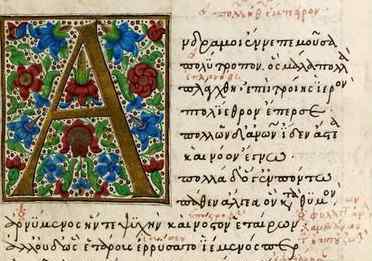 Α
νδρα μοι ἔννεπε μοῦσα
πολύτροπον· ὃς μάλα πολλὰ
πλάγχθη ἐπεὶ τροίης ἱερὸν
πτολίεθρον ἔπερσε
πολλῶν δ' ἀνῶν ἴδεν ἄστεα
καὶ νόον ἔγνω
πολλὰ δ' ὅγ' ἐν πόντω
πάθεν ἄλγεα ὃν κατὰ θυμὸν
ἀρνύμενος ἥν τε ψυχὴν καὶ νόστον ἑταίρων
ἀλλ' οὐδ' ὣς ἑτάρους ἐρρύσατο ἱέμενός περ